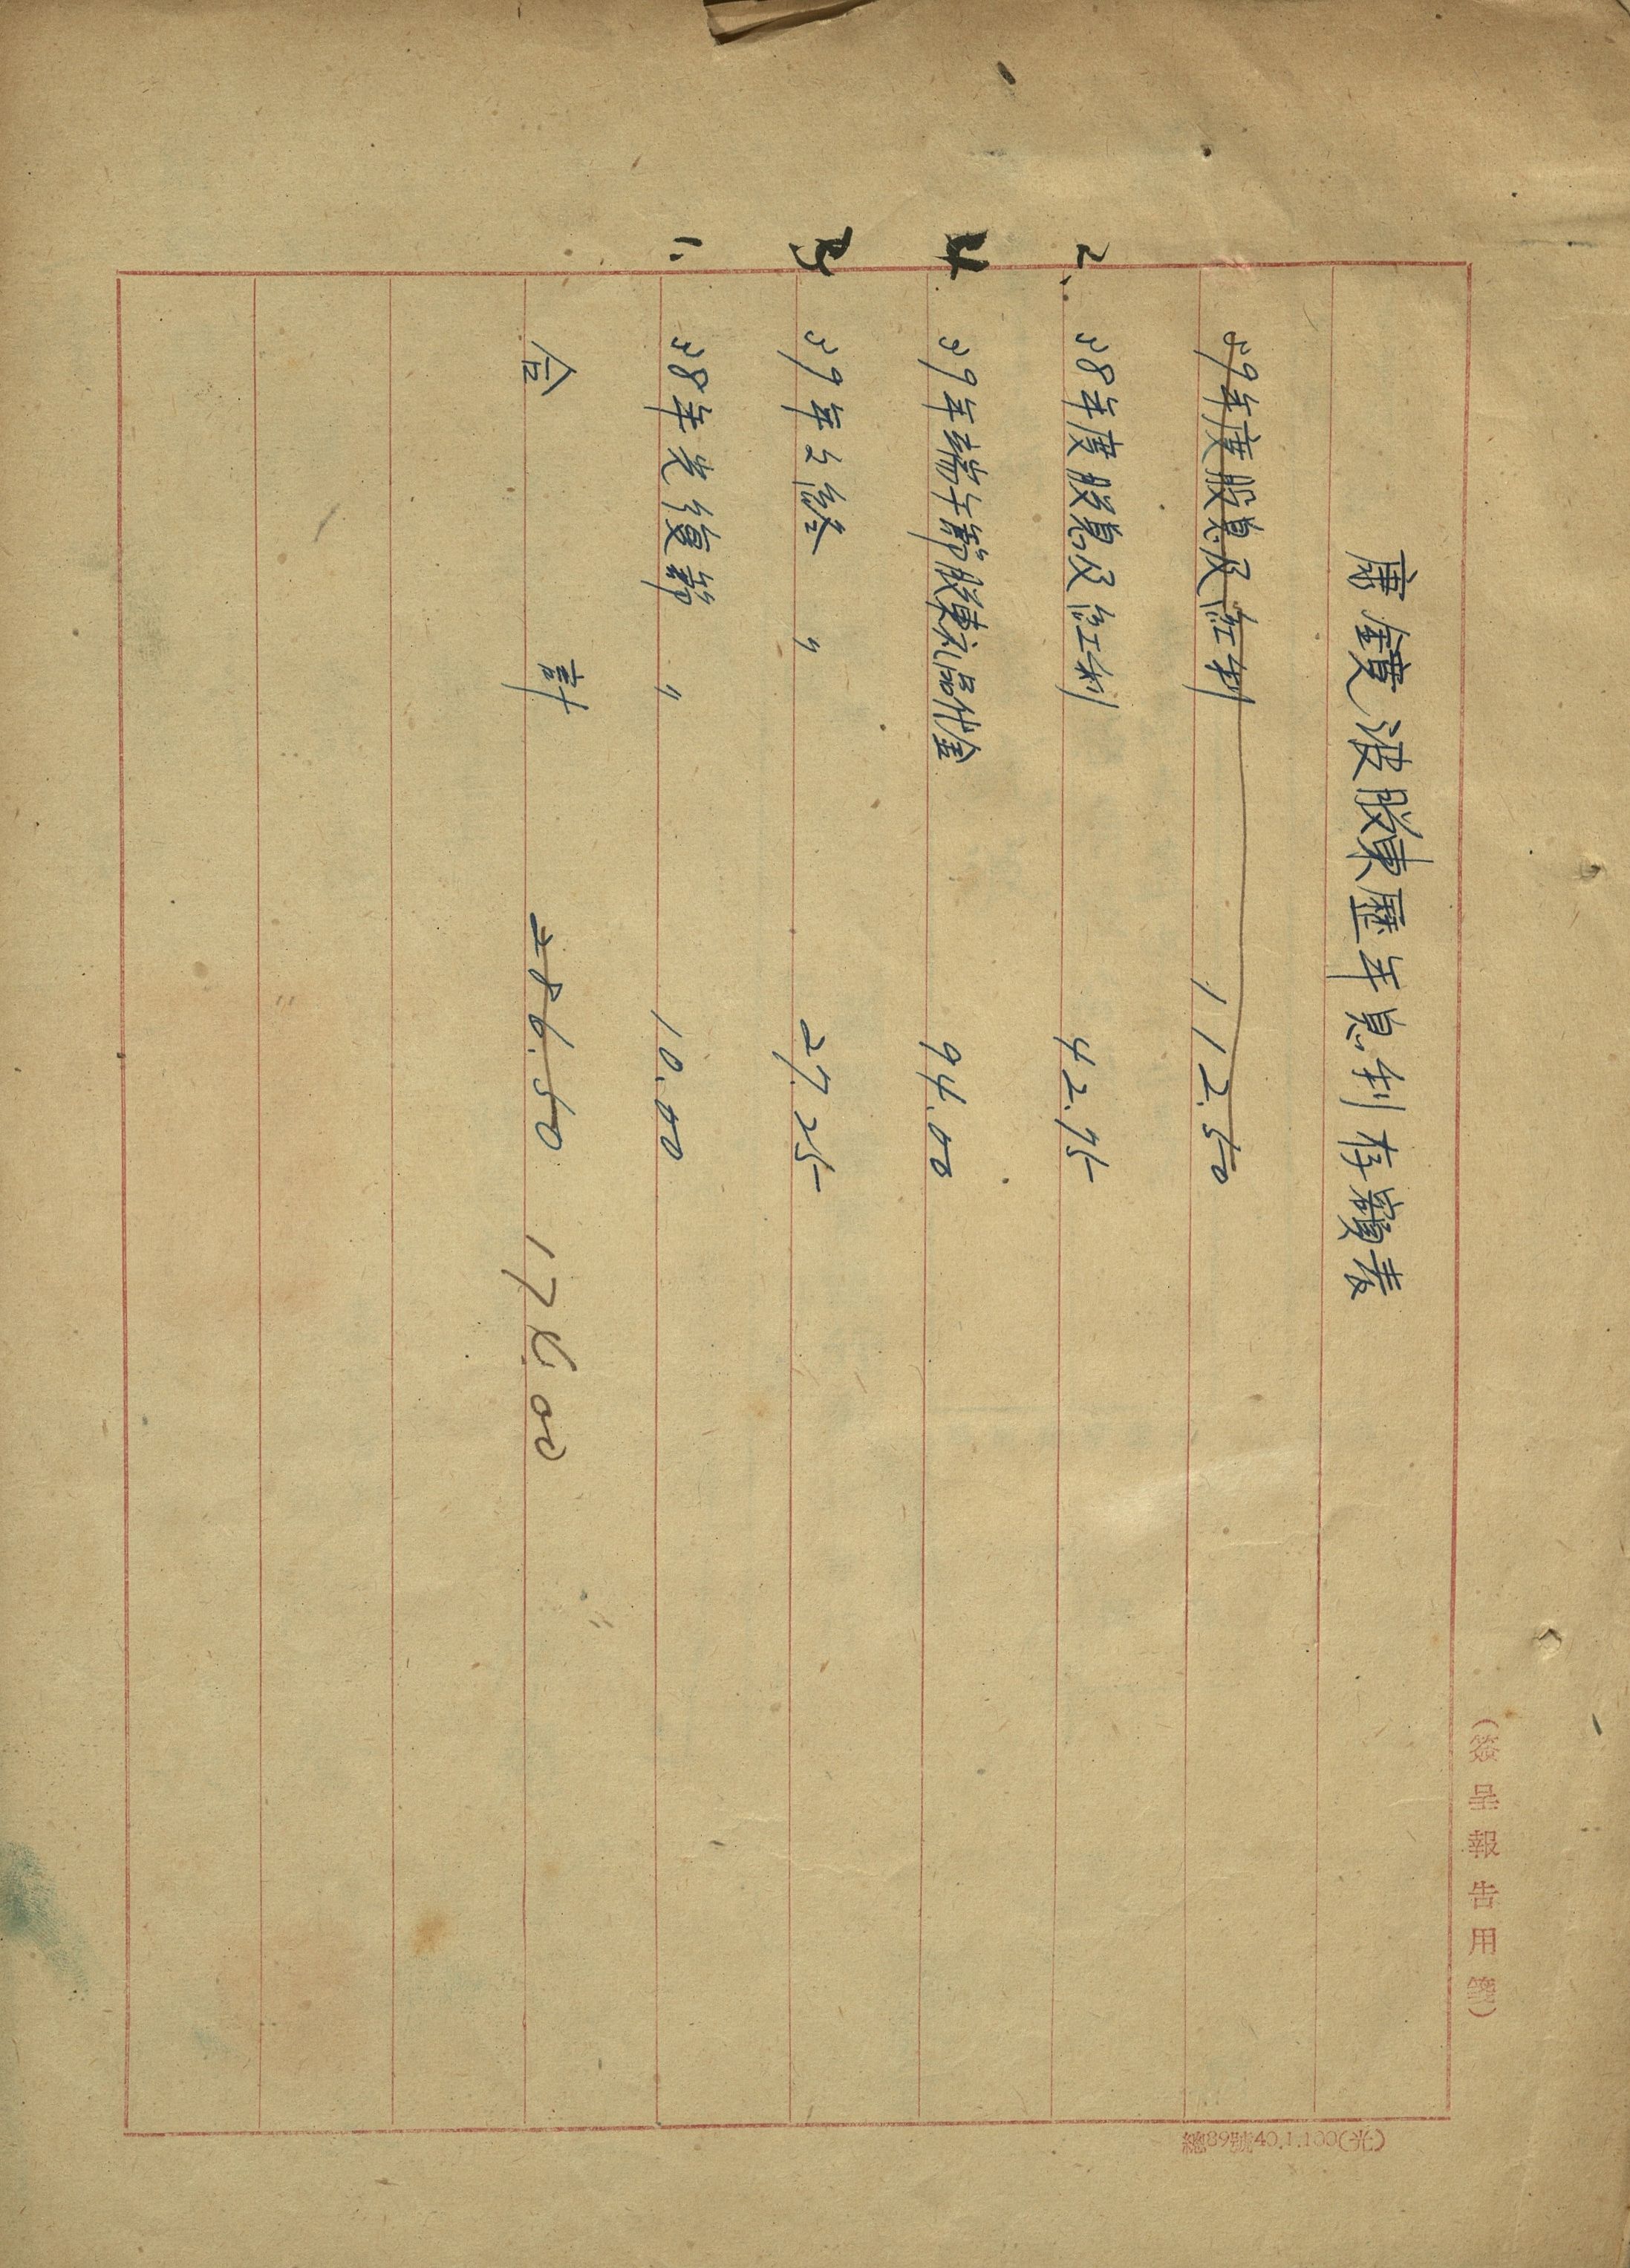 (簽呈報告用箋)
唐鏡波股東歷年息利存積表
39年度股息及紅利 112.50
2. 38年度股息及紅利 42.75
4 39年端午節股東礼品代金 94.00
3 39年2給 〃 27.25
1. 38年光復節 〃 10.00
合計 286.50 174.00
總89號40.1.100(光)